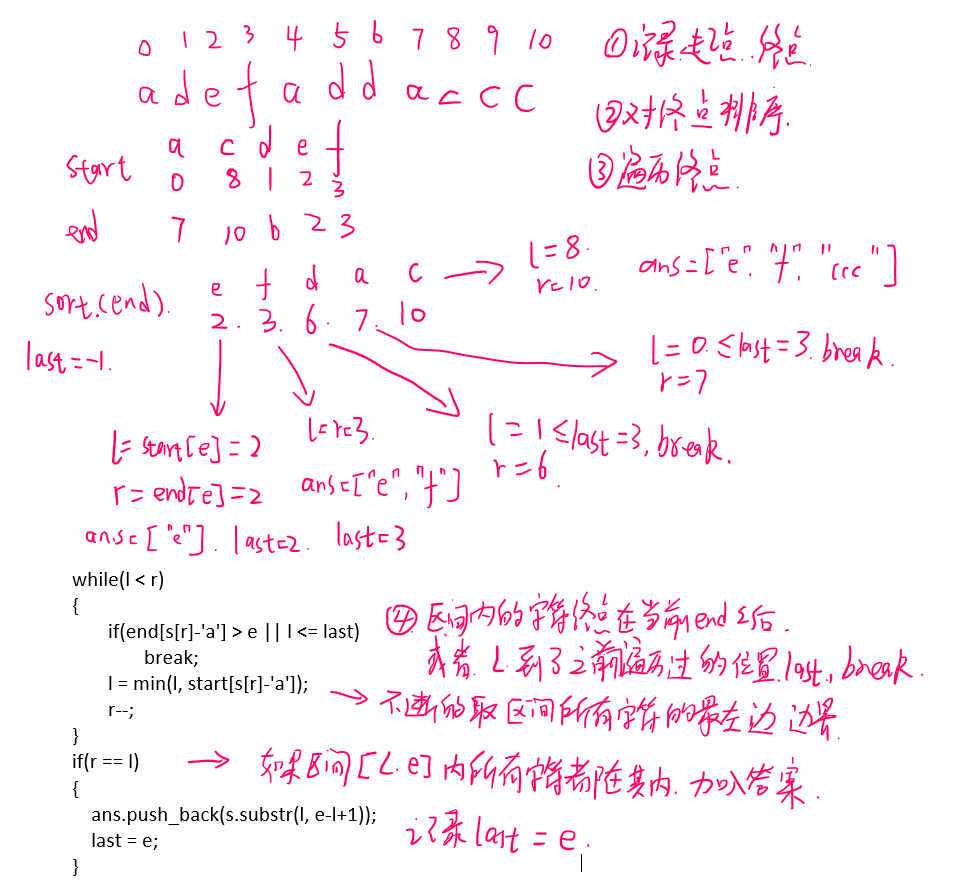 0 1 2 3 4 5 6 7 8 9 10
a d e f a d d a c c c
①记录起点.终点
②对终点排序.
③遍历终点.
a c d e f
start 0 8 1 2 3
end 7 10 6 2 3
e f d a c
sort.(end). 2. 3. 6. 7. 10
last=-1.
l=8.
r=10.
ans=["e","f","ccc"]
l=0.≤last=3.break.
r=7
l=1≤last=3,break.
r=6.
l=r=3.
ans=["e","f"]
last=3
l=start[e]=2
r=end[e]=2
ans=["e"]. last=2.
while(l < r)
{
if(end[s[r]-'a'] > e || l <= last)
break;
l = min(l, start[s[r]-'a']);
r--;
}
if(r == l)
{
ans.push_back(s.substr(l, e-l+1));
last = e;
}
④区间内的字符终点在当前end之后.
或者.L到了之前遍历过的位置last.,break.
不断的取区间所有字符的最左边边界.
如果区间[L.e]内所有字符都在其内.加入答案.
记录last=e.